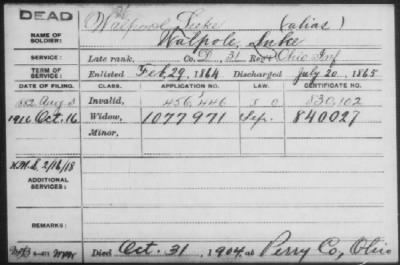 DEAD
Walpool, Luke (alias)
NAME OF SOLDIER: Walpole, Luke
SERVICE: Late rank, Co. D, 31 Reg't Ohio Inf
TERM OF SERVICE: Enlisted Feb. 29, 1864 Discharged July 20, 1865
DATE OF FILING. CLASS. APPLICATION NO. LAW. CERTIFICATE NO.
1882 Aug 3 Invalid, 456,446 830,102
1916 Oct. 16 Widow, 1077971 Sep. 840027
Minor,
2/16/18
ADDITIONAL SERVICES:
REMARKS:
Died Oct. 31, 1904, at Perry Co, Ohio